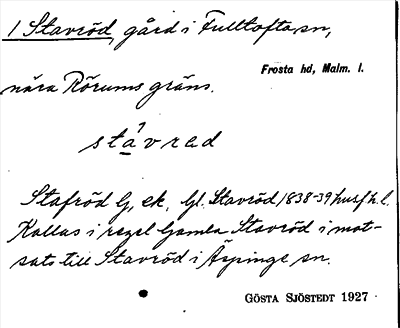 1 Stavröd, gård i Fulltofta sn,
Frosta hd, Malm. l.
nära Rörums gräns.
stávrad
Stafröd G, ek, Gl. Stavröd 1838-39 husfh.l.
Kallas i regel Gamla Stavröd i mot-
sats till Stavröd i Äspinge sn.
GÖSTA SJÖSTEDT 1927